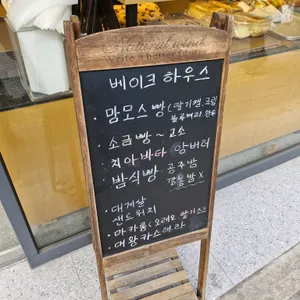 Natural wind
베이크 하우스
· 맘모스빵 (딸기잼, 크림
블루베리, 완두
· 소금빵 ~ 고소
· 치아바타 앙버터
밤식빵 · 공주밤
깡통밤 X
· 대게살
샌드위치
· 마카롱 (오레오, 딸기치즈
· 대왕카스테라